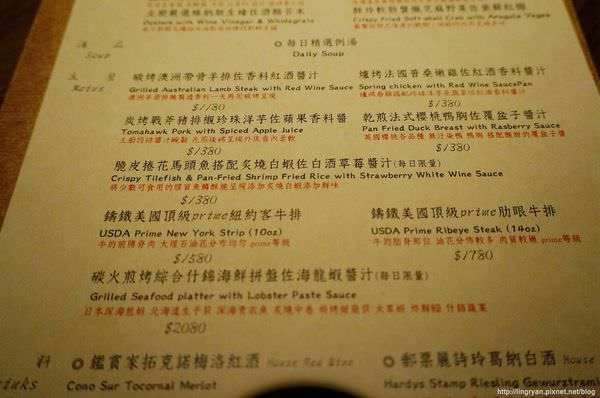 Oysters with Wine Vinegar & Wholegrain
Crispy Fried Soft-shell Crab with Arugula Vegea
湯 品
Soup
◎每日精選例湯
Daily Soup
主 餐
Mains
碳烤澳洲帶骨羊排佐香料紅酒醬汁
Grilled Australian Lamb Steak with Red Wine Sauce
$1180
爐烤法國普桑嫩雞佐紅酒香料醬汁
Spring chicken with Red Wine SaucePan
$1380
炭烤戰斧豬排襯珍珠洋芋佐蘋果香料醬
Tomahawk Pork with Spiced Apple Juice
$1380
乾煎法式櫻桃鴨胸佐覆盆子醬汁
Pan Fried Duck Breast with Rasberry Sauce
英國櫻桃谷品種 無汙染鴨 鴨胸 搭配酸甜的覆盆子醬
$1380
脆皮捲花馬頭魚搭配炙燒白蝦佐白酒草莓醬汁(每日限量)
Crispy Tilefish & Pan-Fried Shrimp Fried Rice with Strawberry White Wine Sauce
將少數可食用的膠質魚鱗酥脆呈現添加炙燒白蝦添加鮮味
$1380
鑄鐵美國頂級prime紐約客牛排
USDA Prime New York Strip (10oz)
牛的前腰脊肉 大理石油花分布均勻 prime等級
$1580
鑄鐵美國頂級prime肋眼牛排
USDA Prime Ribeye Steak (14oz)
牛的肋脊部位 油花分佈較多 肉質較嫩 prime等級
$1780
碳火煎烤綜合什錦海鮮拼盤佐海龍蝦醬汁(每日限量)
Grilled Seafood platter with Lobster Paste Sauce
$2080
料
◎鑑賞家拓克諾梅洛紅酒 House Red Wine
Cono Sur Tocornal Merlot
◎郵票麗詩玲葛納白酒 House
Hardys Stamp Riesling Gewurztrami
http://lingryan.pixnet.net/blog